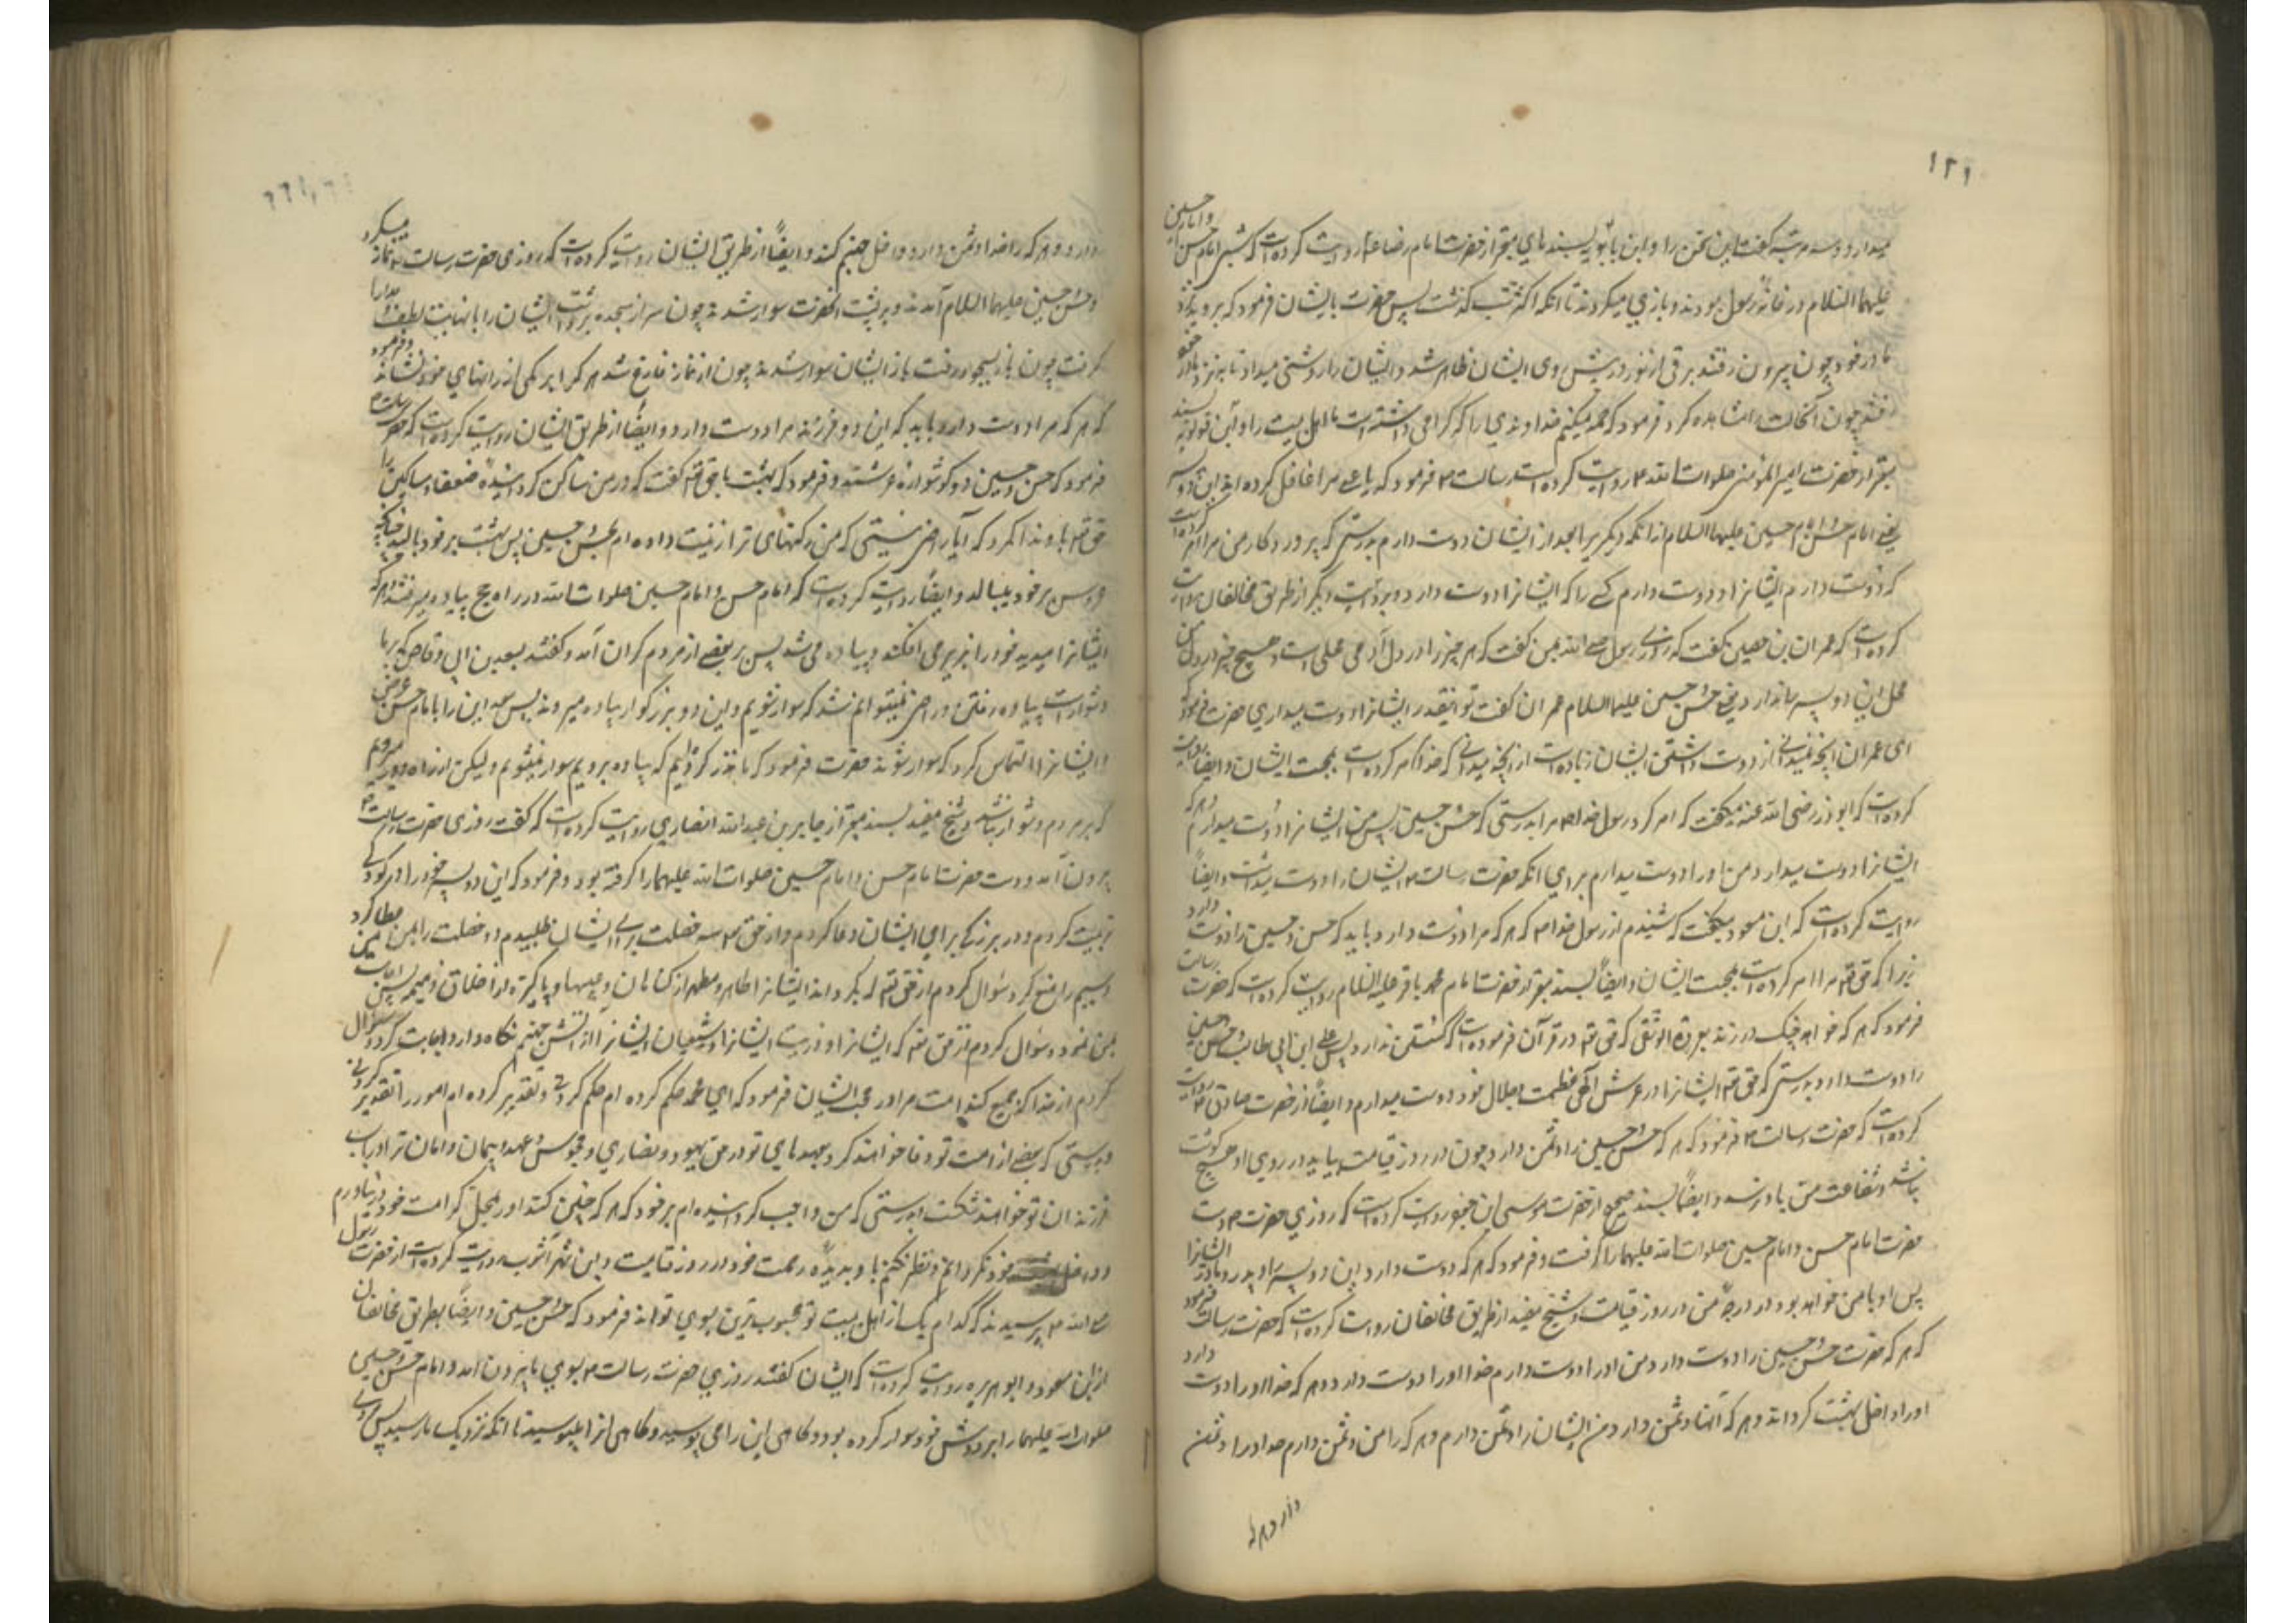 ۱۲۱
میدارد و سه مرتبه گفت این سخن را و ابن بابویه بسندهای معتبر از حضرت امام رضا ع روایت کرده است که شبی امام حسن و امام حسین
علیهما السلام در خانه رسول بودند و بازی میکردند تا آنکه اکثر شب گذشت پس حضرت بایشان فرمود که بروید نزد
مادر خود چون بیرون رفتند برقی از نور در پیش روی ایشان ظاهر شد و ایشان را روشنی میداد تا بنزد مادر خود
رفتند چون آنحالت را مشاهده کرد فرمود که حمد میکنم خداوندی را که گرامی داشته است ما اهل بیت را و ابن قولویه بسند
معتبر از حضرت امیر المؤمنین صلوات الله ع روایت کرده است رسالت ص فرمود که یا علی مرا غافل کرده اند این دو پسر
یعنی امام حسن و امام حسین علیهما السلام از آنکه دیگر برا بعد از ایشان دوست دارم بدرستی که پروردگار من مرا امر کرده است
که دوست دارم ایشانرا و دوست دارم کسی را که ایشانرا دوست دارد و بروایت دیگر از طریق مخالفان روایت
کرده است که عمران بن حصین گفت که روزی رسول صلی الله بمن گفت که هر چیز را در دل آدمی محلی است و هیچ چیز در دل من
محل این دو پسر ندارد یعنی حسن و حسین علیهما السلام عمران گفت تو اینقدر ایشانرا دوست میداری حضرت فرمود که
ای عمران آنچه نمیدانی از دوست داشتن ایشان زیاده است از آنچه میدانی که خدا امر کرده است بمحبت ایشان و ایضا روایت
کرده است که ابوذر رضی الله عنه میگفت که امر کرد رسول خدا ص مرا بدوستی حسن و حسین پس من ایشانرا دوست میدارم و هر که
ایشانرا دوست میدارد من او را دوست میدارم برای آنکه حضرت رسالت ص ایشان را دوست میداشت و ایضاً
روایت کرده است که ابن مسعود میگفت که شنیدم از رسول خدا ص که هر که مرا دوست دارد باید که حسن و حسین را دوست دارد
زیرا که حق تع مرا امر کرده است بمحبت ایشان و ایضاً بسند معتبر از حضرت امام محمد باقر علیه السلام روایت کرده است که حضرت رسالت
فرمود که هر که خواهد چنگ در زند بعروة الوثقی که حق تع در قرآن فرموده است که گسستن ندارد پس علی ابن ابی طالب و حسن و حسین
را دوست دارد بدرستی که حق تع ایشانرا در عرش عظمت و جلال خود دوست میدارد و ایضاً از حضرت صادق ع روایت
کرده است که حضرت رسالت ص فرمود که هر که حسن و حسین را دشمن دارد چون در روز قیامت بیاید در روی او هیچ گوشت
نباشد و شفاعت من باو نرسد و ایضاً بسند صحیح از حضرت موسی ابن جعفر روایت کرده است که روزی حضرت ص دست
حضرت امام حسن و امام حسین صلوات الله علیهما را گرفت و فرمود که هر که دوست دارد این دو پسر را و پدر و مادر ایشانرا
پس او با من خواهد بود در درجه من در روز قیامت و شیخ مفید از طریق مخالفان روایت کرده است که حضرت رسالت فرمود
که هر که حضرت حسن و حسین را دوست دارد من او را دوست دارم خدا او را دوست دارد و هر که خدا او را دوست دارد
او را داخل بهشت گرداند و هر که آنها را دشمن دارد من ایشان را دشمن دارم و هر که را من دشمن دارم خدا او را دشمن
دارد و هر که
دارد و هر که را خدا دشمن دارد داخل جهنم کند و ایضاً از طریق ایشان روایت کرده است که روزی حضرت رسالت ص نماز میکرد
و حسن و حسین علیهما السلام آمدند و بر پشت آنحضرت سوار شدند چون سر از سجده برداشت ایشان را بانهایت لطف و مدارا
گرفت چون باز بسجود رفت باز ایشان سوار شدند چون از نماز فارغ شد هر یک را بر یکی از رانهای خود نشاند و فرمود
که هر که مرا دوست دارد باید که این دو فرزند مرا دوست دارد و ایضاً از طریق ایشان روایت کرده است که حضرت رسالت ص
فرمود که حسن و حسین دو گوشواره عرشند و فرمود که بهشت با حق تع گفت که در من ساکن گردانیده ضعفا و مساکین را
حق تع باو ندا کرد که آیا راضی نیستی که من رکنهای ترا زینت داده ام بحسن و حسین پس بهشت بر خود بالید چنانچه
عروس بر خود ببالد و ایضاً روایت کرده است که امام حسن و امام حسین صلوات الله در راه حج پیاده میرفتند هر که
ایشانرا میدید خود را بزیر می افکند و پیاده می شد پس بر بعضی از مردم گران آمد و گفتند بسعد بن ابی وقاص که بر ما
دشوار است پیاده رفتن و راضی نمیتوانیم شد که سوار شویم و این دو بزرگوار پیاده میروند پس سعد این را بامام حسن عرض
و ایشانرا التماس کرد که سوار شوند حضرت فرمود که ما نذر کرده ایم که پیاده برویم سوار نمیشویم ولیکن از راه دور میرویم
که بر مردم دشوار نباشد و شیخ مفید بسند معتبر از جابر بن عبدالله انصاری روایت کرده است که گفت روزی حضرت رسالت ص
بیرون آمد و دست حضرت امام حسن و امام حسین صلوات الله علیهما را گرفته بود و فرمود که این دو پسر خود را در کودکی
تربیت کردم و در بزرگی برای ایشان دعا کردم و از حق تع سه خصلت برای ایشان طلبیدم دو خصلت را بمن عطا کرد
و سیم را منع کرد سؤال کردم از حق تع که بگرداند ایشانرا طاهر و مطهر از گناهان و عیبها و پاکیزه از اخلاق ذمیمه پس اجابت
بمن نمود و سؤال کردم از حق تع که ایشانرا و ذریت ایشانرا و شیعیان ایشانرا از آتش جهنم نگاه دارد اجابت کرد و سؤال
کردم از خدا که جمع کند امت مرا در محبت ایشان فرمود که ای محمد حکم کرده ام حکم کردنی و تقدیر کرده ام امور را تقدیر کردنی
و بدرستی که بعضی از امت تو وفا خواهند کرد بعهدهای تو در حق یهود و نصاری و مجوس و عهد و پیمان و امان ترا در باب
فرزندان تو خواهند شکست بدرستی که من واجب گردانیده ام بر خود که هر که چنین کند او را بمحل کرامت خود درنیاورم
و داخل خود نگردانم و نظر نکنم باو بدیده رحمت خود در روز قیامت و ابن شهر آشوب روایت کرده است از حضرت رسول
صلی الله ص پرسیدند که کدام یک از اهل بیت تو محبوب ترین بسوی تواند فرمود که حسن و حسین و ایضاً بطریق مخالفان
از ابن مسعود و ابو هریره روایت کرده است که ایشان گفتند روزی حضرت رسالت ص بسوی ما بیرون آمد و امام حسن و حسین
صلوات الله علیهما را بر دوش خود سوار کرده بود و گاهی این را می بوسید و گاهی آنرا میبوسید تا آنکه نزدیک ما رسید پس